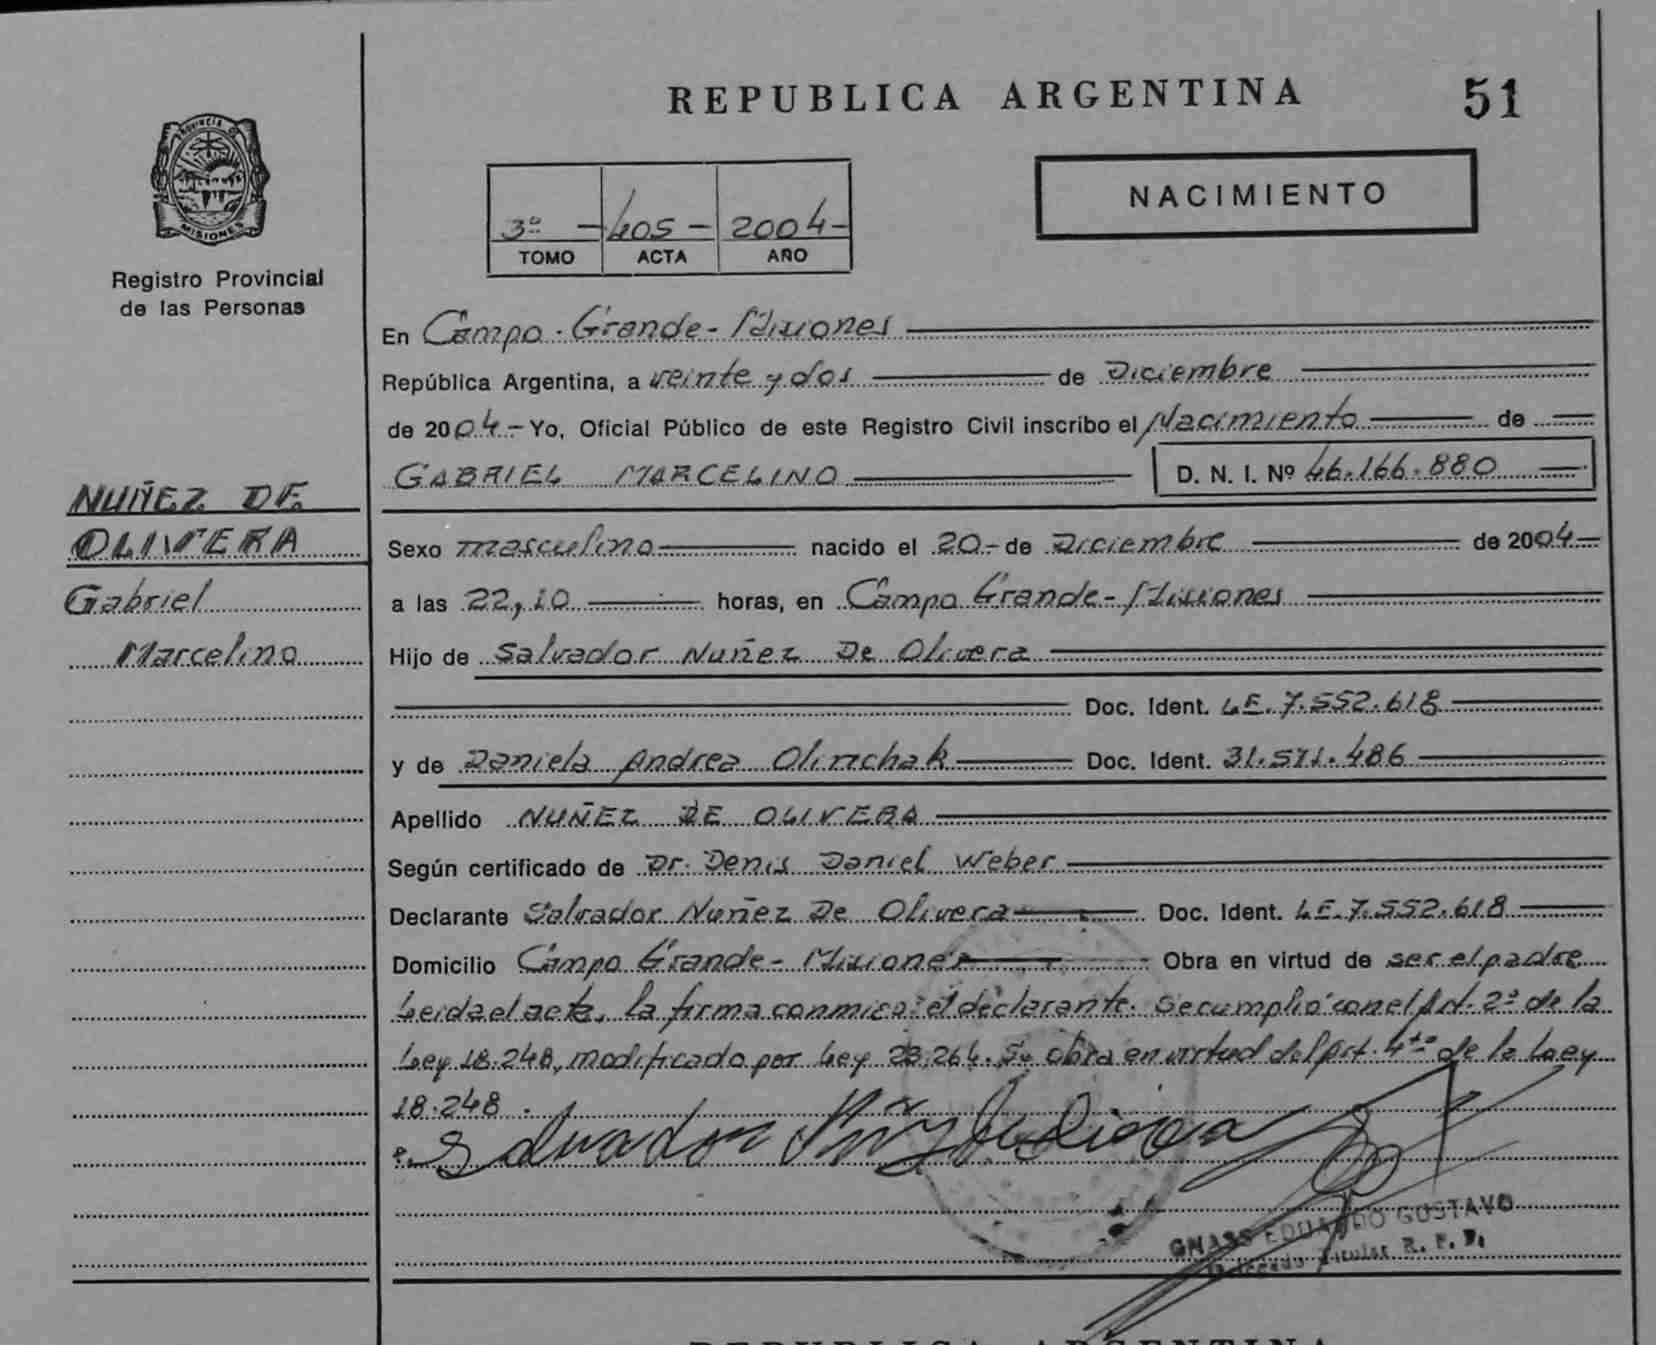 REPUBLICA ARGENTINA 51
PROVINCIA DE
MISIONES
Registro Provincial
de las Personas
3º - 405 - 2004 -
TOMO ACTA AÑO
NACIMIENTO
En Campo Grande - Misiones
República Argentina, a veinte y dos de Diciembre
de 2004 - Yo, Oficial Público de este Registro Civil inscribo el Nacimiento de
GABRIEL MARCELINO D. N. I. Nº 46.166.880
NUÑEZ DE
OLIVERA
Gabriel
Marcelino
Sexo masculino nacido el 20 - de Diciembre de 2004 -
a las 22,10 horas, en Campo Grande - Misiones
Hijo de Salvador Nuñez De Olivera
Doc. Ident. LE. 7.552.618
y de Daniela Andrea Olinchak Doc. Ident. 31.571.486
Apellido NUÑEZ DE OLIVERA
Según certificado de Dr. Denis Daniel Weber
Declarante Salvador Nuñez De Olivera Doc. Ident. LE. 7.552.618
Domicilio Campo Grande - Misiones Obra en virtud de ser el padre
Leida el acta, la firma conmigo el declarante. Se cumplió con el Art. 2º de la
Ley 18.248, modificado por Ley 23.264. Se obra en virtud del Art. 4to de la Ley
18.248.
GNASS EDUARDO GUSTAVO
Delegado Titular R. P. P.
REPUBLICA ARGENTINA